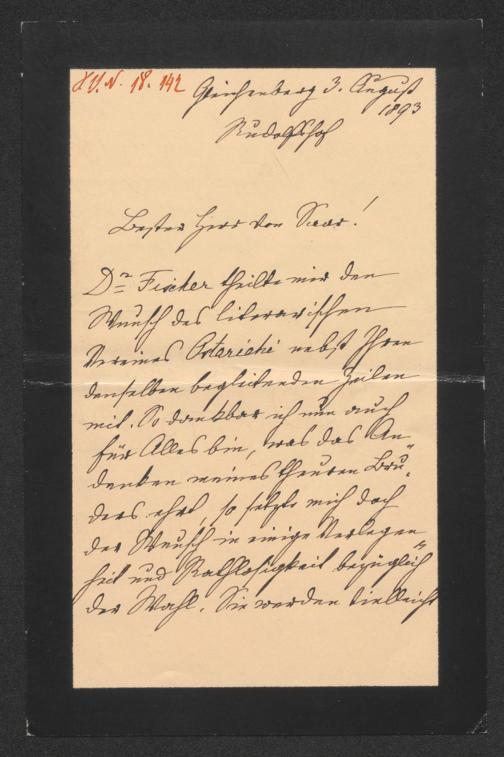 I.N. 18.142
Gleichenberg 3. August
1893
Rudolfshof
Bester Herr von Saar!
Dr Fischer theilte mir den
Wunsch des literarischen
Vereines Ostarichi nebst Ihren
denselben begleitenden Zeilen
mit. So dankbar ich nun auch
für Alles bin, was das An¬
denken meines theuren Bru¬
ders ehrt, so setzte mich doch
der Wunsch in einige Verlegen¬
heit und Rathlosigkeit bezüglich
der Wahl. Sie werden vielleicht